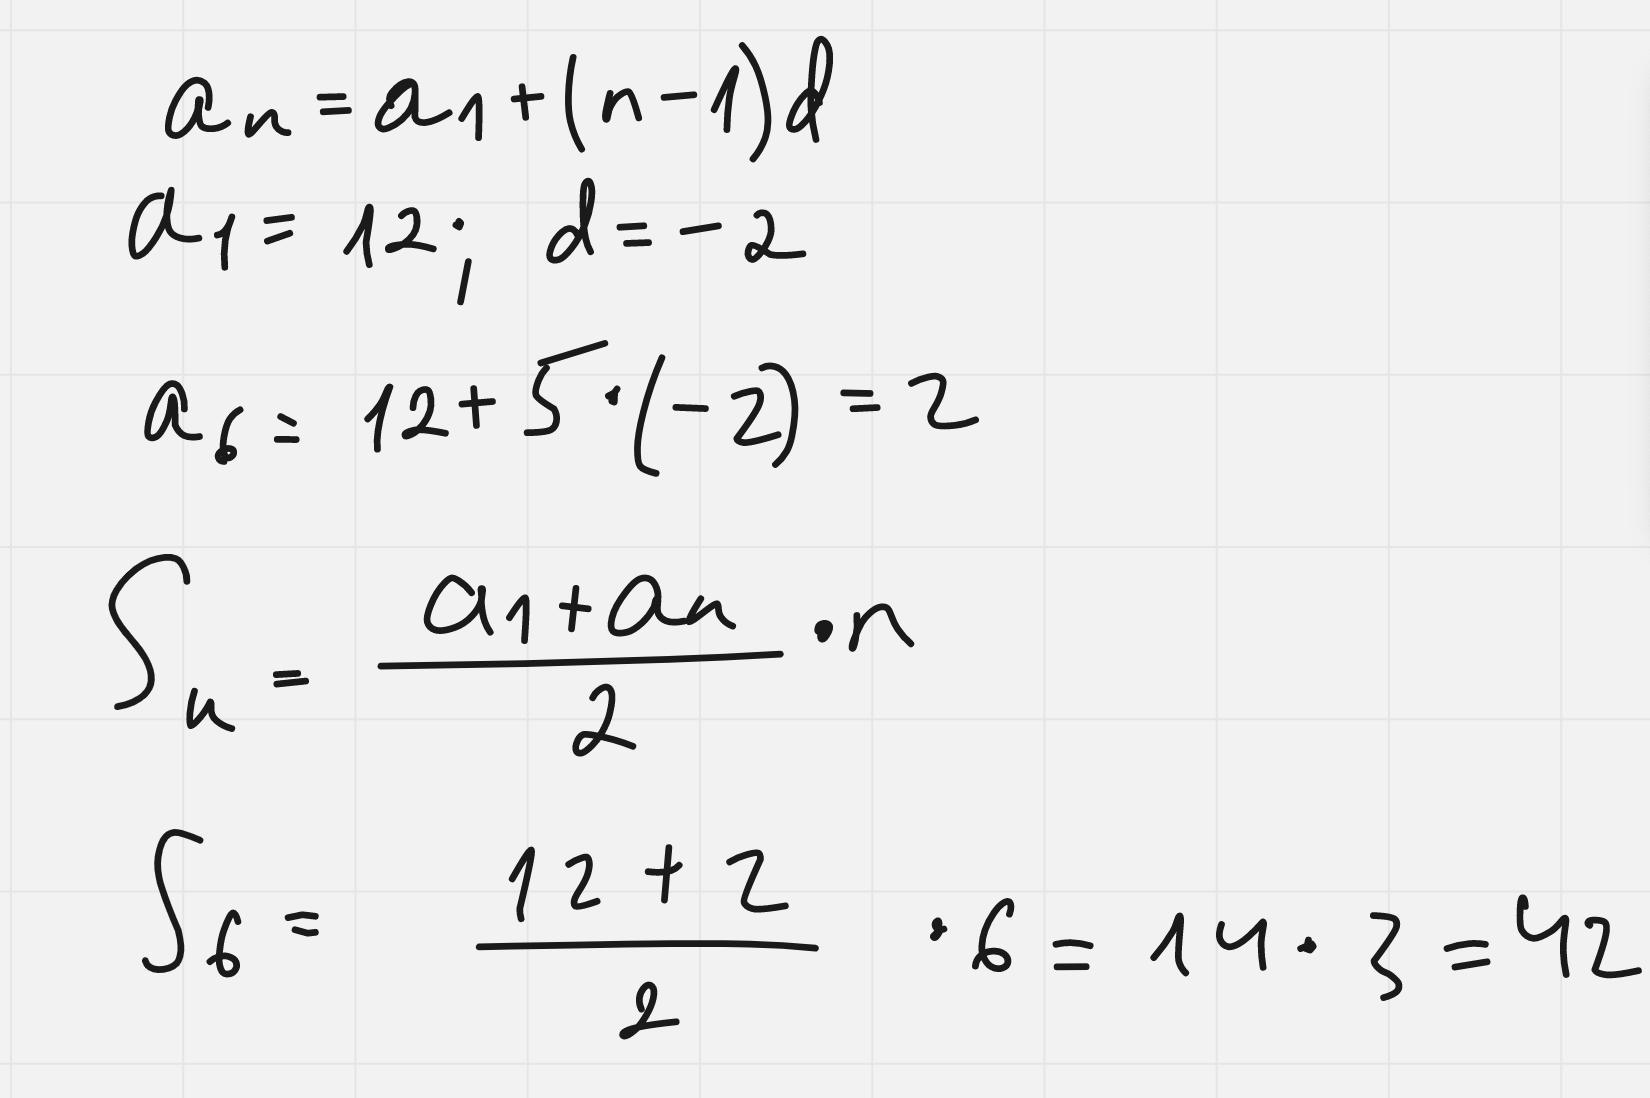 aₙ = a₁ + (n - 1)d
a₁ = 12; d = -2
a₆ = 12 + 5 · (-2) = 2
Sₙ = (a₁ + aₙ)/2 · n
S₆ = (12 + 2)/2 · 6 = 14 · 3 = 42